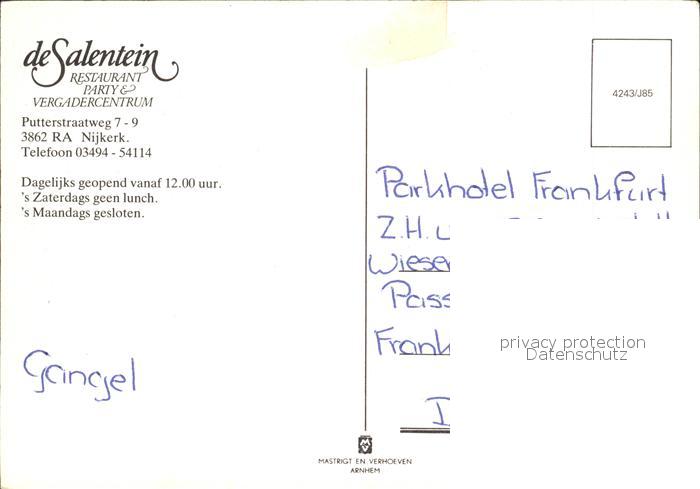 de Salentein
RESTAURANT
PARTY &
VERGADERCENTRUM
Putterstraatweg 7 - 9
3862 RA Nijkerk.
Telefoon 03494 - 54114
Dagelijks geopend vanaf 12.00 uur.
's Zaterdags geen lunch.
's Maandags gesloten.
Gangel
4243/J85
Parkhotel Frankfurt
Z.H.
privacy protection
Datenschutz
MASTRIGT EN VERHOEVEN
ARNHEM